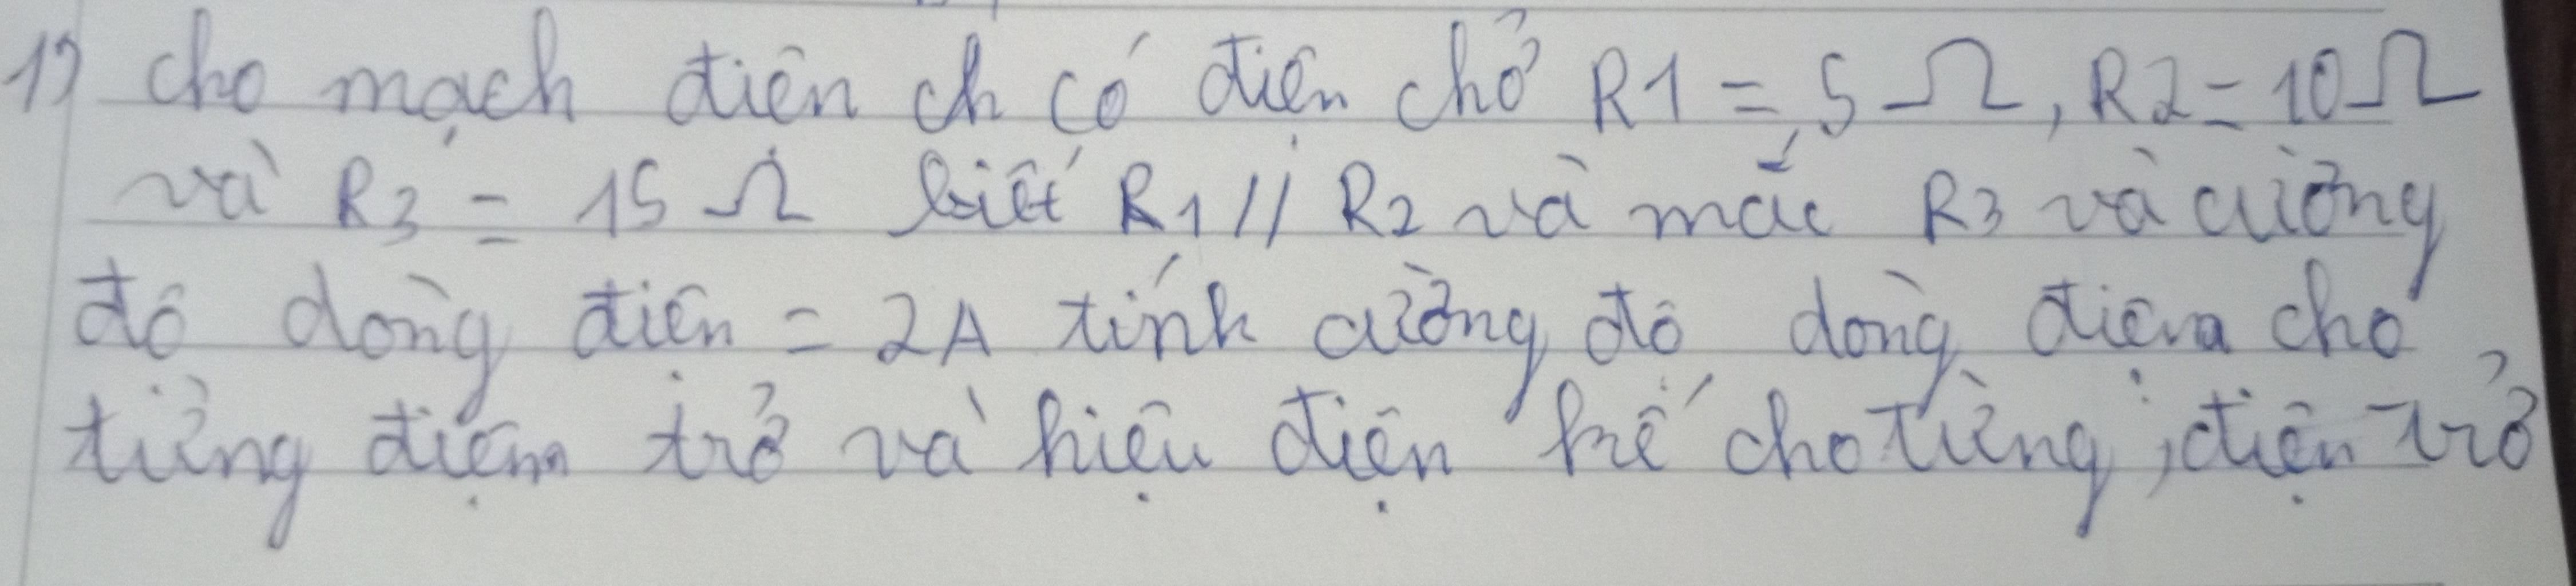 1) cho mạch điện ch có điện chở R1 = 5 Ω, R2 = 10 Ω
và R3 = 15 Ω biết R1 // R2 và mắc R3 và cường
độ dòng điện = 2A tính cường độ dòng điện cho
từng điện trở và hiệu điện thế cho từng, điện trở